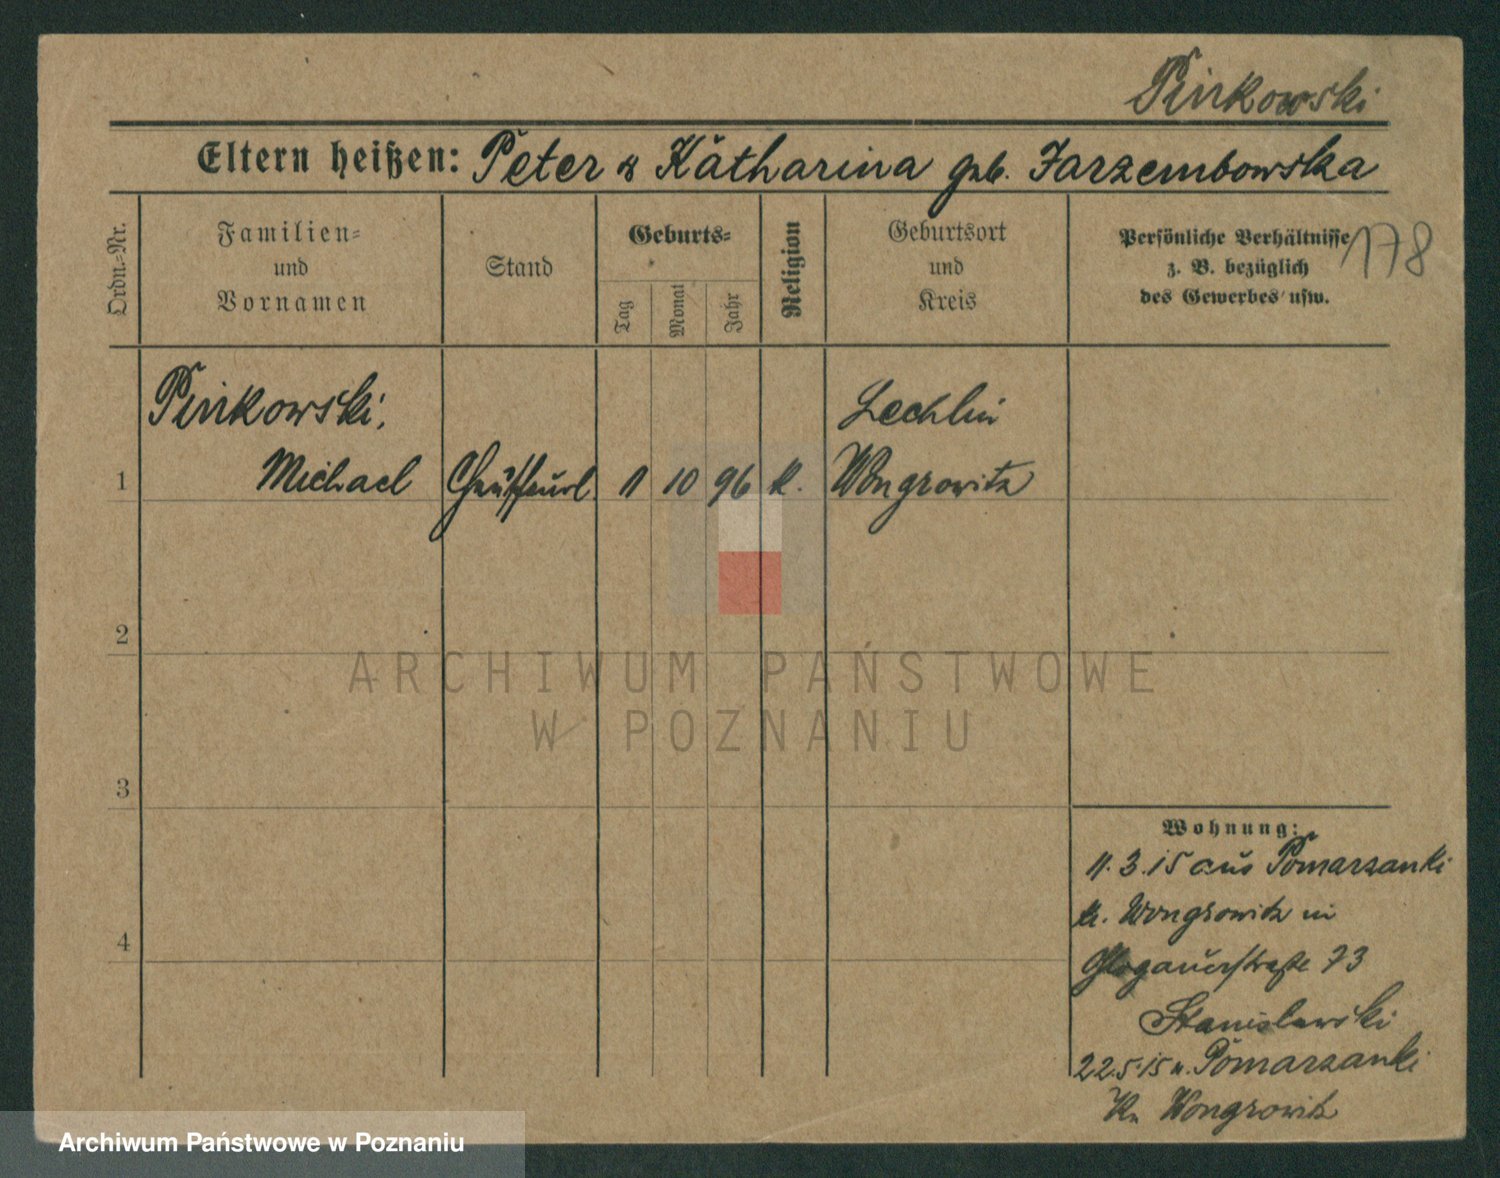 Pinkowski
Eltern heißen: Peter & Kätharina geb. Jarzembowska
Ordn.-Nr.
Familien-
und
Vornamen
Stand
Geburts-
Tag
Monat
Jahr
Religion
Geburtsort
und
Kreis
Persönliche Verhältnisse
z. B. bezüglich
des Gewerbes usw.
178
Pinkowski,
Michael
1
11 10 96 K.
Lechlin
Wongrowitz
2
3
4
Wohnung:
11.3.15 aus Pomarzanki
Kr. Wongrowitz in
Glogauerstraße 73
Stanislawski
22.5.15 n. Pomarzanki
Kr. Wongrowitz
ARCHIWUM PAŃSTWOWE
W POZNANIU
Archiwum Państwowe w Poznaniu